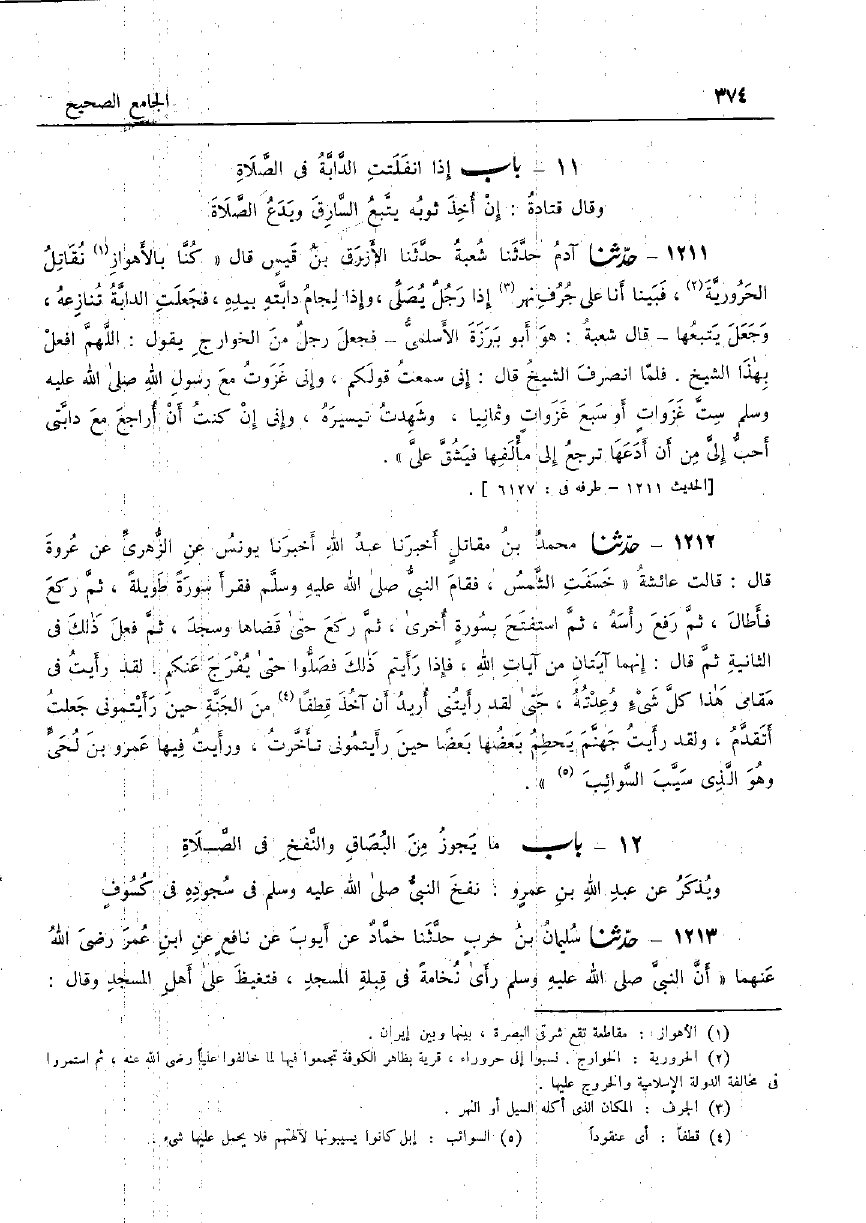 ٣٧٤ الجامع الصحيح
١١ - باب إذا انفَلَتتِ الدَّابَّةُ فى الصَّلَاةِ
وقال قتادةُ : إنْ أُخِذَ ثوبُه يتَّبعُ السارِقَ ويَدَعُ الصَّلَاةَ
١٢١١ - حدّثنا آدمُ حدَّثنا شُعبةُ حدَّثنا الأزرَق بنُ قَيسٍ قال « كُنَّا بالأَهوازِ (١) نُقَاتِلُ
الحَرُوريَّةَ (٢) ، فَبَينا أنا على جُرُفِ نهرٍ (٣) إذا رَجُلٌ يُصَلَّى ، وإذا لِجامُ دابَّتهِ بيدِهِ ، فجعَلَتِ الدابَّةُ تُنازِعهُ ،
وَجَعَلَ يَتبعُها - قال شعبةُ : هوَ أبو بَرَزَةَ الأسلمىُّ - فجعلَ رجلٌ منَ الخوارجِ يقول : اللَّهمَّ افعلْ
بِهٰذَا الشيخ . فلمَّا انصرفَ الشيخُ قال : إنى سمعتُ قولَكم ، وإنى غَزَوتُ معَ رسولِ اللهِ صلىٰ الله عليه
وسلم سِتَّ غَزَواتٍ أو سَبعَ غَزَواتٍ وثمانيا ، وشَهِدتُ تيسيرَهُ ، وإنى إنْ كنتُ أنْ أُراجعَ معَ دابَّتى
أحبُّ إلىَّ مِن أن أدَعَهَا ترجعُ إلى مأْلَفِها فيَشُقَّ علىَّ » .
[الحديث ١٢١١ - طرفه فى : ٦١٢٧ ] .
١٢١٢ - حدّثنا محمدُ بنُ مقاتلٍ أخبرَنا عبدُ اللهِ أخبرَنا يونسُ عنِ الزُّهرىِّ عن عُروةَ
قال : قالت عائشةُ « خَسَفَتِ الشَّمسُ ، فقامَ النبىُّ صلىٰ الله عليهِ وسلَّم فقرأَ سورَةً طَويلةً ، ثمَّ ركعَ
فأطالَ ، ثمَّ رَفعَ رأْسَهُ ، ثمَّ استفتَحَ بِسُورةٍ أُخرىٰ ، ثمَّ ركعَ حتىٰ قضاها وسجدَ ، ثمَّ فعلَ ذٰلكَ فى
الثانيةِ ثمَّ قال : إنهما آيَتانِ من آياتِ اللهِ ، فإذا رَأيتم ذٰلكَ فصَلُّوا حتىٰ يُفْرَجَ عَنكم . لقد رأيتُ فى
مَقامى هَٰذا كلَّ شَىْءٍ وُعِدْتُهُ ، حَتَّىٰ لقد رأيتُنى أُريدُ أن آخُذَ قِطفًا (٤) منَ الجَنَّةِ حينَ رَأَيْتمونى جَعلتُ
أتَقدَّمُ ، ولقد رأيتُ جهنَّمَ يَحطِمُ بَعضُها بَعضًا حينَ رأيتمُونى تأخَّرتُ ، ورأيتُ فِيها عَمرو بنَ لُحَىٍّ
وهُوَ الَّذِى سَيَّبَ السَّوائِبَ (٥) » .
١٢ - باب ما يَجوزُ مِنَ البُصَاقِ والنَّفخِ فى الصَّـلَاةِ
ويُذكَرُ عن عبدِ اللهِ بنِ عمرٍو : نفخَ النبىُّ صلىٰ الله عليه وسلم فى سُجودِهِ فى كُسُوفٍ
١٢١٣ - حدّثنا سُليمانُ بنُ حربٍ حدَّثَنا حمَّادٌ عن أيوبَ عن نافعٍ عنِ ابنِ عُمرَ رضىَ اللهُ
عَنهما « أَنَّ النبىَّ صلى الله عليهِ وسلم رأىٰ نُخامةً فى قِبلةِ المسجدِ ، فتغيظَ علىٰ أهلِ المسجدِ وقال :
(١) الأهواز : مقاطعة تقع شرقى البصرة ، بينها وبين إيران .
(٢) الحرورية : الخوارج . نسبوا إلى حروراء ، قرية بظاهر الكوفة تجمعوا فيها لما خالفوا علياً رضى الله عنه ، ثم استمروا
فى مخالفة الدولة الإسلامية والخروج عليها .
(٣) الجرف : المكان الذى أكله السيل أو النهر .
(٤) قطفاً : أى عنقوداً (٥) السوائب : إبل كانوا يسيبونها لآلهتهم فلا يحمل عليها شىء .